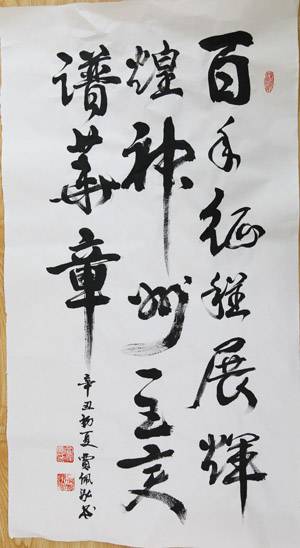 百年征程展辉
煌神州巨变
谱華章
辛丑初夏賈佩书